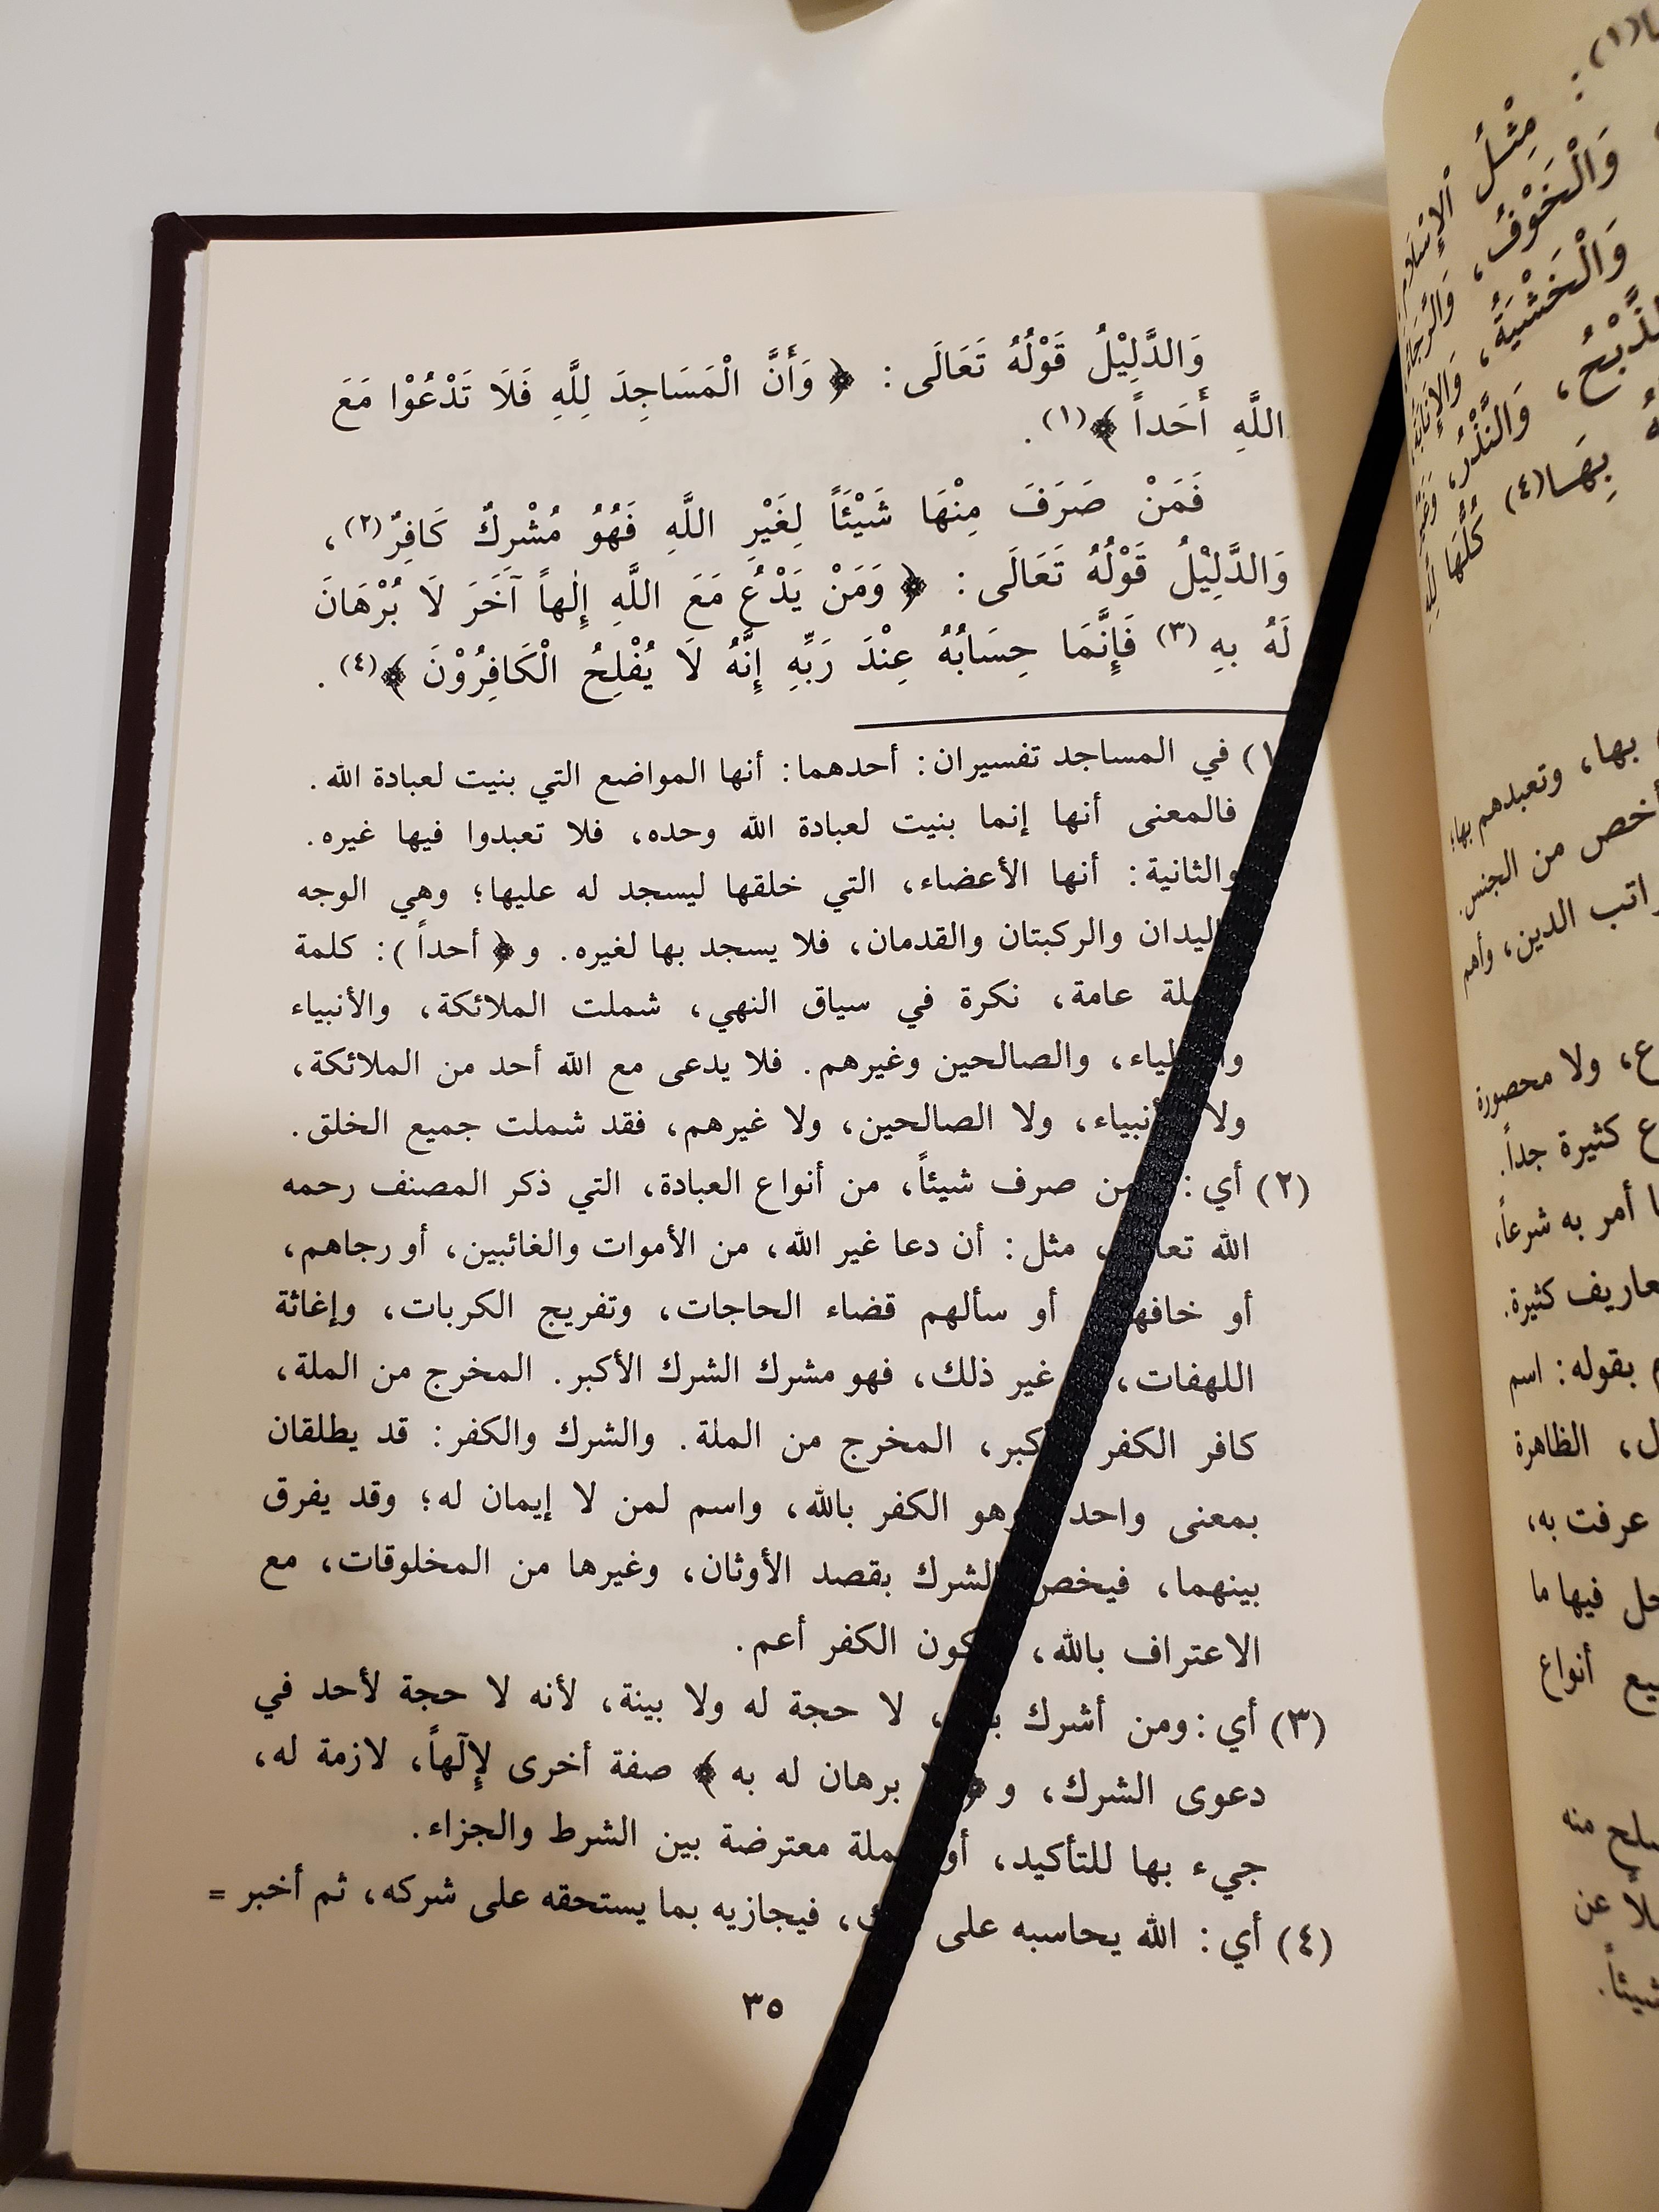 وَالدَّلِيْلُ قَوْلُهُ تَعَالَى: ﴿ وَأَنَّ الْمَسَاجِدَ لِلَّهِ فَلَا تَدْعُوْا مَعَ
اللَّهِ أَحَداً ﴾(١).
فَمَنْ صَرَفَ مِنْهَا شَيْئَاً لِغَيْرِ اللَّهِ فَهُوُ مُشْرِكٌ كَافِرٌ(٢)،
وَالدَّلِيْلُ قَوْلُهُ تَعَالَى: ﴿ وَمَنْ يَدْعُ مَعَ اللَّهِ إِلٰهاً آخَرَ لَا بُرْهَانَ
لَهُ بِهِ (٣) فَإِنَّمَا حِسَابُهُ عِنْدَ رَبِّهِ إِنَّهُ لَا يُفْلِحُ الْكَافِرُوْنَ ﴾(٤).
(١) في المساجد تفسيران: أحدهما: أنها المواضع التي بنيت لعبادة الله.
فالمعنى أنها إنما بنيت لعبادة الله وحده، فلا تعبدوا فيها غيره.
والثانية: أنها الأعضاء، التي خلقها ليسجد له عليها؛ وهي الوجه
اليدان والركبتان والقدمان، فلا يسجد بها لغيره. و﴿ أحداً ): كلمة
عامة، نكرة في سياق النهي، شملت الملائكة، والأنبياء
والصالحين وغيرهم. فلا يدعى مع الله أحد من الملائكة،
ولا الأنبياء، ولا الصالحين، ولا غيرهم، فقد شملت جميع الخلق.
(٢) أي: من صرف شيئاً، من أنواع العبادة، التي ذكر المصنف رحمه
الله تعالى، مثل: أن دعا غير الله، من الأموات والغائبين، أو رجاهم،
أو خافهم، أو سألهم قضاء الحاجات، وتفريج الكربات، وإغاثة
اللهفات، غير ذلك، فهو مشرك الشرك الأكبر. المخرج من الملة،
كافر الكفر الأكبر، المخرج من الملة. والشرك والكفر: قد يطلقان
بمعنى واحد وهو الكفر بالله، واسم لمن لا إيمان له؛ وقد يفرق
بينهما، فيخص الشرك بقصد الأوثان، وغيرها من المخلوقات، مع
الاعتراف بالله، الكفر أعم.
(٣) أي: ومن أشرك لا حجة له ولا بينة، لأنه لا حجة لأحد في
دعوى الشرك، و﴿ برهان له به ﴾ صفة أخرى لإلٓهاً، لازمة له،
جيء بها للتأكيد، أو جملة معترضة بين الشرط والجزاء.
(٤) أي: الله يحاسبه على فيجازيه بما يستحقه على شركه، ثم أخبر =
٣٥
مِثْلُ الْإِسْلَامِ
وَالْخَوْفُ، وَالرَّجَاءُ
وَالْخَشْيَةُ، وَالْإِنَابَةُ
وَالنَّذْرُ،
بِهَا(٤) كُلُّهَا لِلَّهِ
بها، وتعبدهم بها؛
أخص من الجنس.
الدين، وأهم
ولا محصورة
كثيرة جداً.
أمر به شرعاً،
كثيرة.
بقوله: اسم
الظاهرة
عرفت به،
فيها ما
أنواع
منه
عن